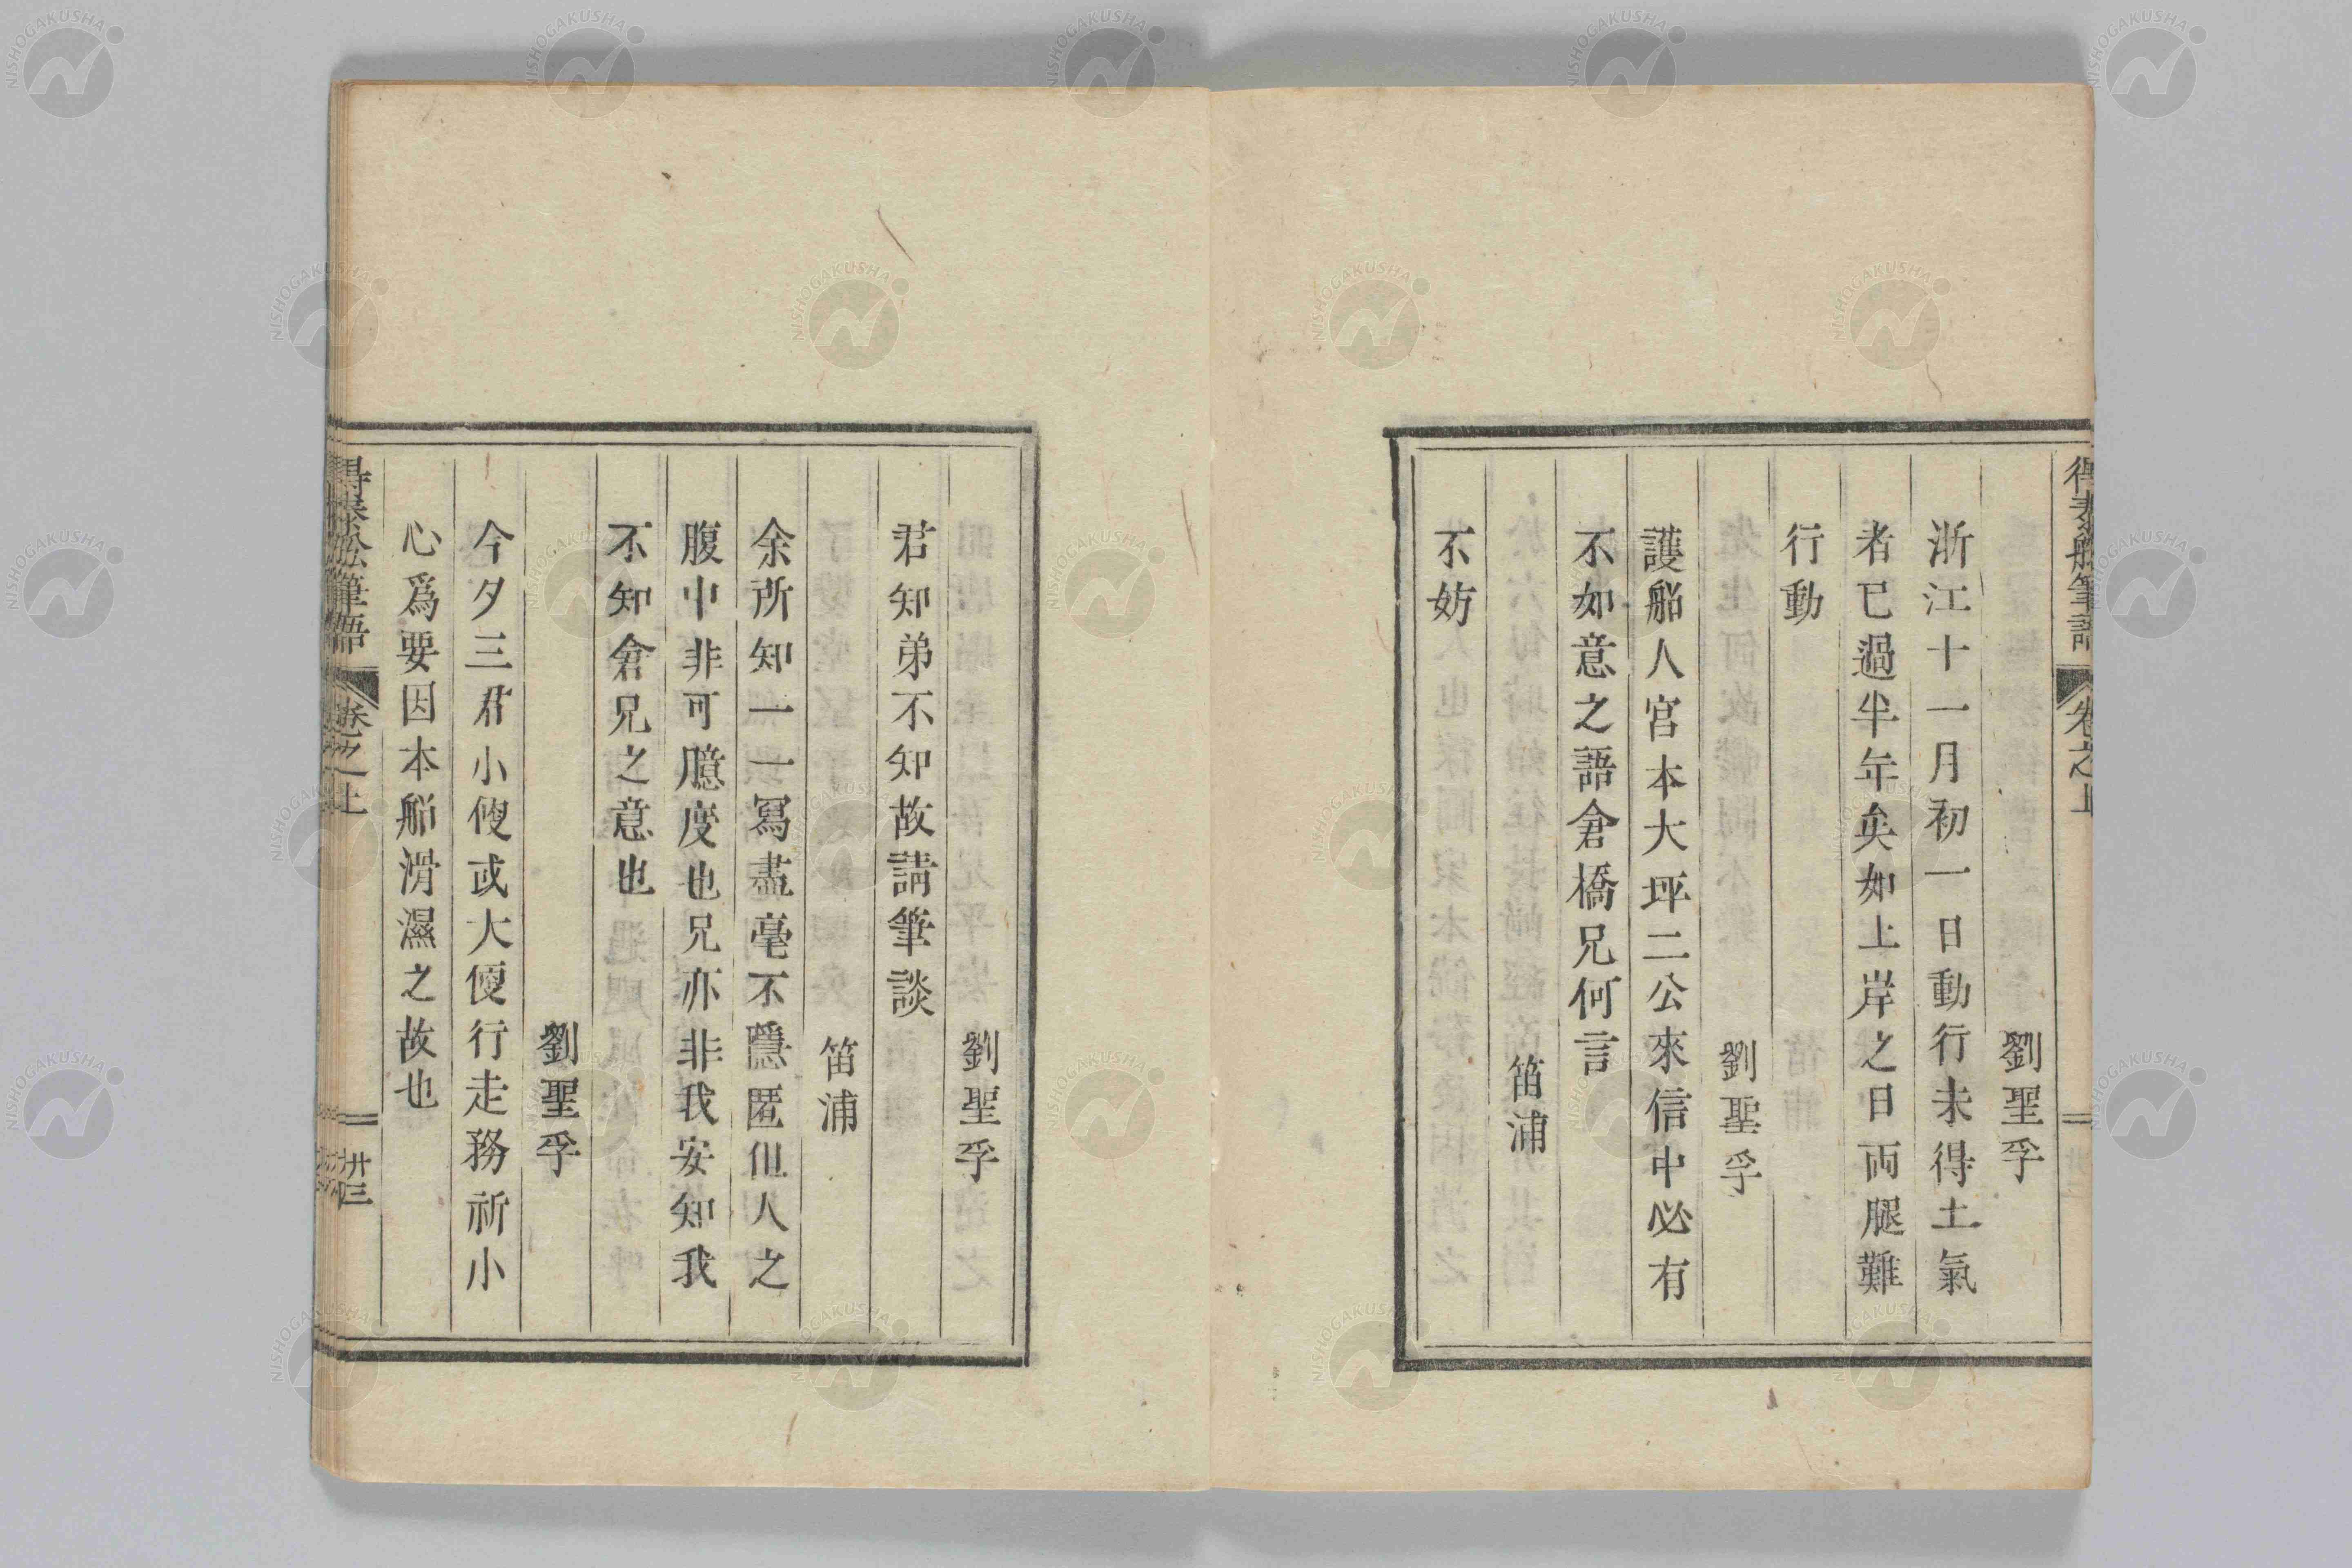 劉聖孚
浙江十一月初一日動行未得土氣
者已過半年矣如上岸之日両腿難
行動
劉聖孚
護船人宮本大坪二公來信中必有
不如意之語倉橋兄何言
笛浦
不妨
得泰船筆語 卷之上
劉聖孚
君知弟不知故請筆談
笛浦
余所知一一寫盡毫不隱匿但人之
腹中非可臆度也兄亦非我安知我
不知倉兄之意也
劉聖孚
今夕三君小便或大便行走務祈小
心爲要因本船滑濕之故也
得泰船筆語 卷之上 廿三
NISHOGAKUSHA